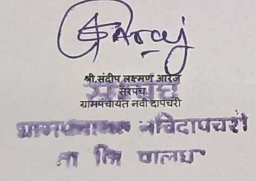 श्री.संदीप लक्ष्मण आरज
सरपंच
ग्रामपंचायत नवी दापचरी
ग्रामपंचायत नविदापचरी
ता जि पालघर